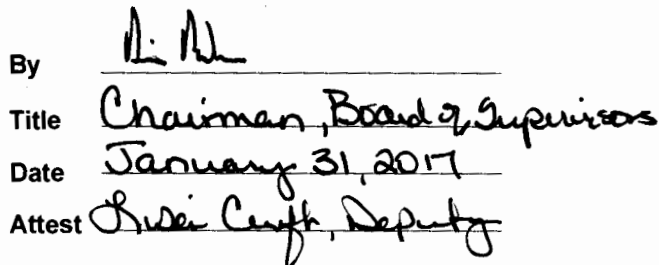 By
Title Chairman, Board of Supervisors
Date January 31, 2017
Attest Deputy